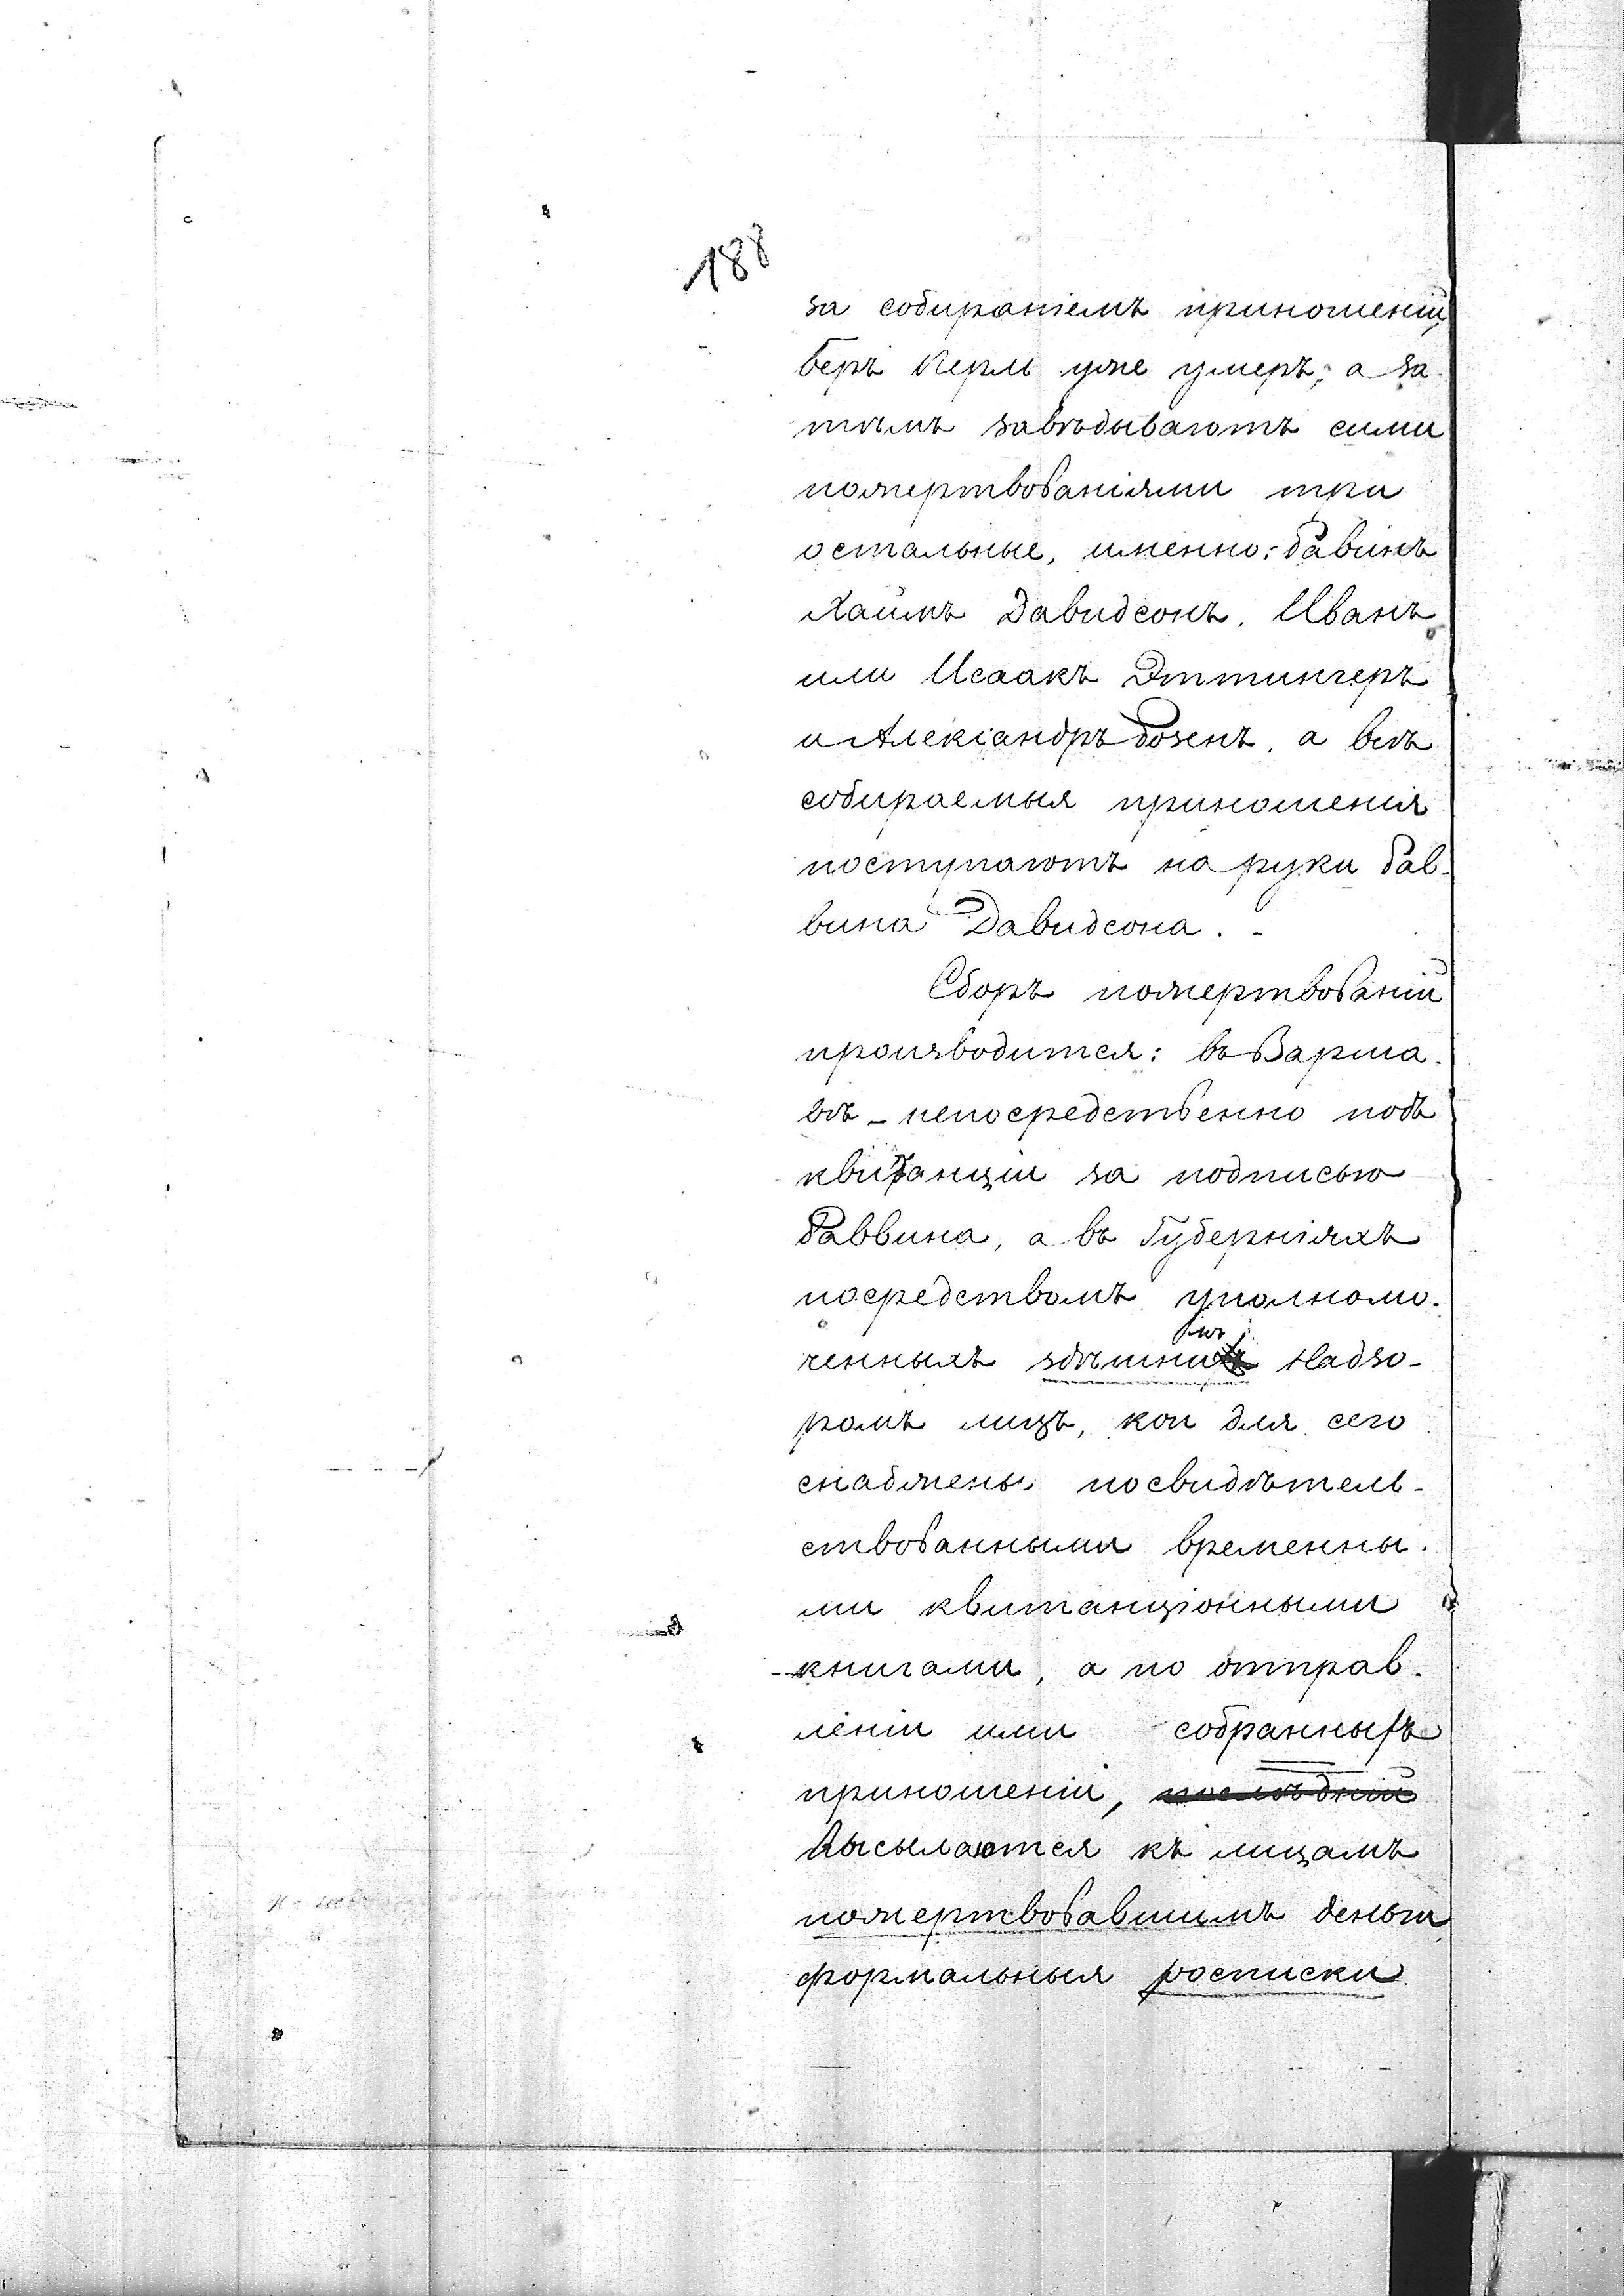 188
за собираніемъ приношеній
Беръ Перли уже умеръ; а за
тѣмъ завѣдываютъ сими
пожертвованіями три
остальные, именно: Равинъ
Хаимъ Давидсонъ, Иванъ
или Исаакъ Эттингеръ
и Александръ Розенъ, а всѣ
собираемыя приношенія
поступаютъ на руки Рав-
вина Давидсона. -
Сборъ пожертвованій
производится: въ Варша-
вѣ - непосредственно подъ
квитанціи за подписью
Раввина, а въ Губерніяхъ
посредствомъ уполномо-
ченныхъ здѣшни Надзо-
ромъ лицъ, кои для сего
снабжены посвидѣтель-
ствованными временны-
ми квитанціонными
книгами, а по отправ-
леніи ими собранныхъ
приношеній, послѣдній
высылаются къ лицамъ
пожертвовавшимъ деньги
формальныя росписки